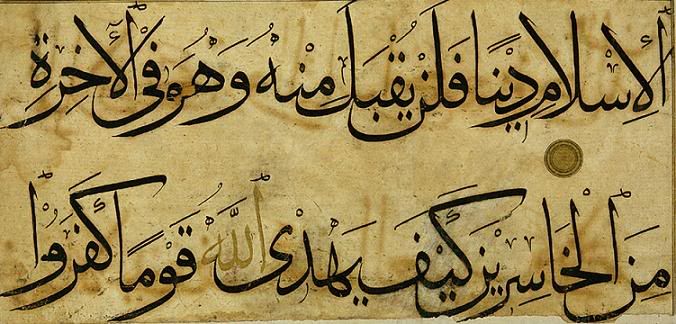 الْإِسْلَامِ دِينًا فَلَنْ يُقْبَلَ مِنْهُ وَهُوَ فِي الْآخِرَةِ
مِنَ الْخَاسِرِينَ كَيْفَ يَهْدِى اللَّهُ قَوْمًا كَفَرُوا